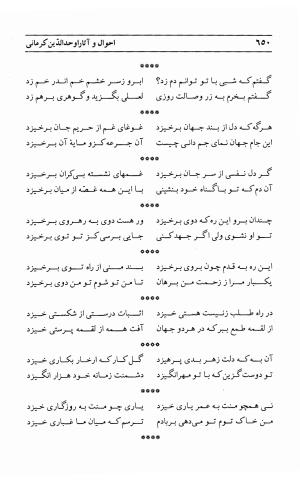 ۶۵۰ احوال و آثار اوحدالدّین کرمانی
****
گفتم که شبی با تو توانم دم زد؟ ابرو ز سر خشم خم اندر خم زد
گفتم بخرم به زر وصالت روزی لعلی بگزید و گوهری برهم زد
****
هرگه که دل از بند جهان برخیزد غوغای غم از حریم جان برخیزد
این جام جهان نمای جم دانی چیست آن جرعه کزو مایهٔ آن برخیزد
****
گر دل نفسی از سر جان برخیزد غمهای نشسته بی‌کران برخیزد
آن دم که تو با گناه خود بنشینی با این همه غصّه از میان برخیزد
****
چندان برو این ره که دوی برخیزد ور هست دوی به رهروی برخیزد
تو او نشوی ولی اگر جهد کنی جایی برسی کز تو توی برخیزد
****
این ره به قدم چون بروی برخیزد بند منی از راه توی برخیزد
یکبار مرا ز زحمت من برهان تا من تو شوم تو من دوی برخیزد
****
در راه طلب نیست هستی خیزد اثبات درستی از شکستی خیزد
از لقمه طمع ببر که در هر دو جهان آفت همه از لقمه پرستی خیزد
****
آن به که دلت زهر بدی پرهیزد گل کار که ار خار بکاری خیزد
تو دوست گزین که با تو مهر انگیزد دشمنت زمانه خود هزار انگیزد
****
نی همچو منت به عمر یاری خیزد یاری چو منت به روزگاری خیزد
من خاک توم تو می‌دهی بر بادم ترسم که میان ما غباری خیزد
****